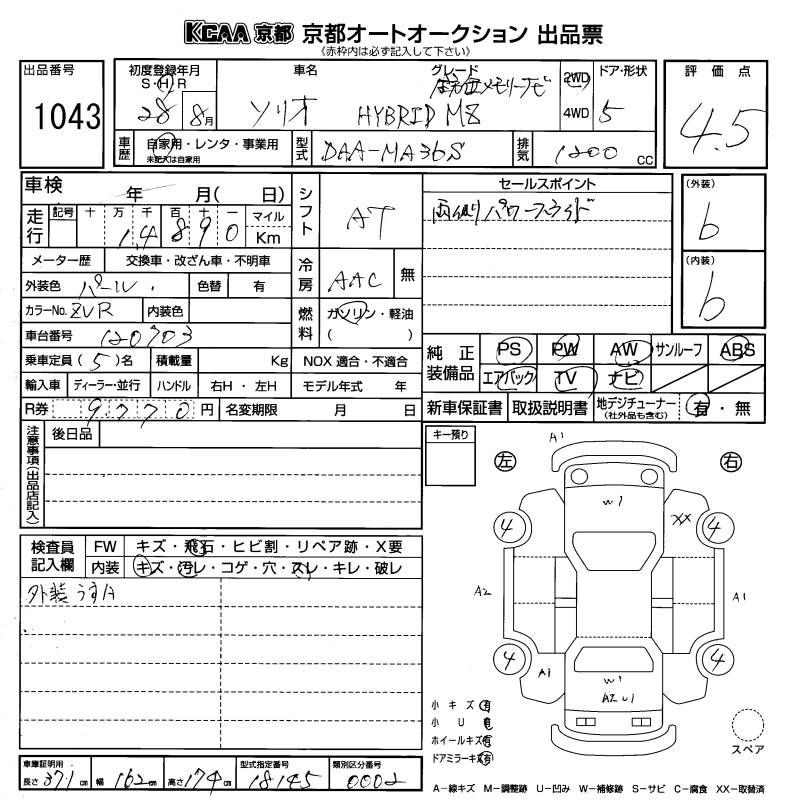 KCAA 京都 京都オートオークション 出品票
《赤枠内は必ず記入して下さい》
出品番号
1043
初度登録年月
S・H・R
28 8月
車名
ソリオ
グレード
HYBRID MZ
2WD
4WD
ドア・形状
5
評価点
4.5
車歴
自家用・レンタ・事業用
未記入は自家用
型式
DAA-MA36S
排気
1200 cc
車検
年 月( 日)
走行
記号 十 万 千 百 十 一
1,4 8 9 0
マイル
Km
シフト
AT
セールスポイント
両側パワースライド
(外装)
b
(内装)
b
メーター歴
交換車・改ざん車・不明車
冷房
AAC
無
外装色
パール
色替
有
カラーNo. ZVR
内装色
燃料
ガソリン・軽油
( )
車台番号
120703
乗車定員 (5)名
積載量
Kg
NOX 適合・不適合
純正装備品
PS PW AW サンルーフ ABS
エアバック TV ナビ
輸入車
ディーラー・並行
ハンドル
右H・左H
モデル年式 年
R券
9770円
名変期限 月 日
新車保証書
取扱説明書
地デジチューナー
(社外品も含む)
有・無
注意事項(出品店記入)
後日品
キー預り
A1
左
右
W1
XX
4
4
A2
A1
4
4
A1
W1
A2 U1
検査員記入欄
FW
キズ・飛石・ヒビ割・リペア跡・X要
内装
キズ・汚レ・コゲ・穴・スレ・キレ・破レ
外装 うすA
小キズ 有
小U 有
ホイールキズ 有
ドアミラーキズ 有
スペア
車庫証明用
長さ 371cm
幅 162cm
高さ 174cm
型式指定番号
18145
類別区分番号
0002
A-線キズ M-調整跡 U-凹み W-補修跡 S-サビ C-腐食 XX-取替済